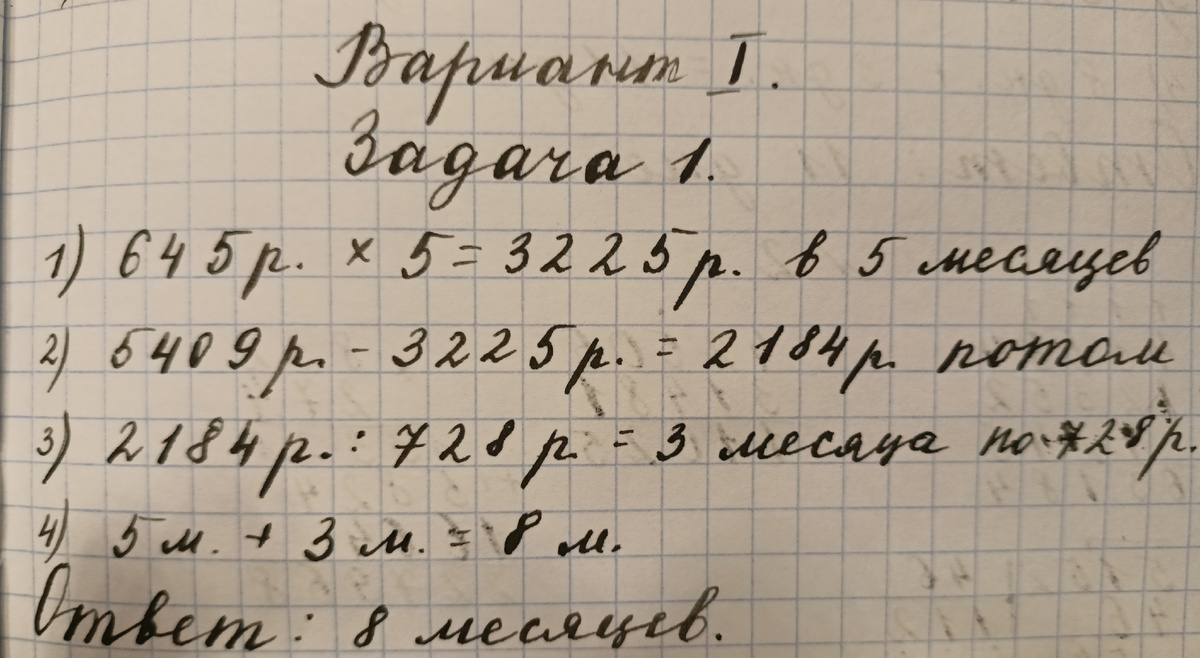 Вариант I.
Задача 1.
1) 645 р. × 5 = 3225 р. в 5 месяцев
2) 5409 р. - 3225 р. = 2184 р. потом
3) 2184 р. : 728 р. = 3 месяца по 728 р.
4) 5 м. + 3 м. = 8 м.
Ответ: 8 месяцев.